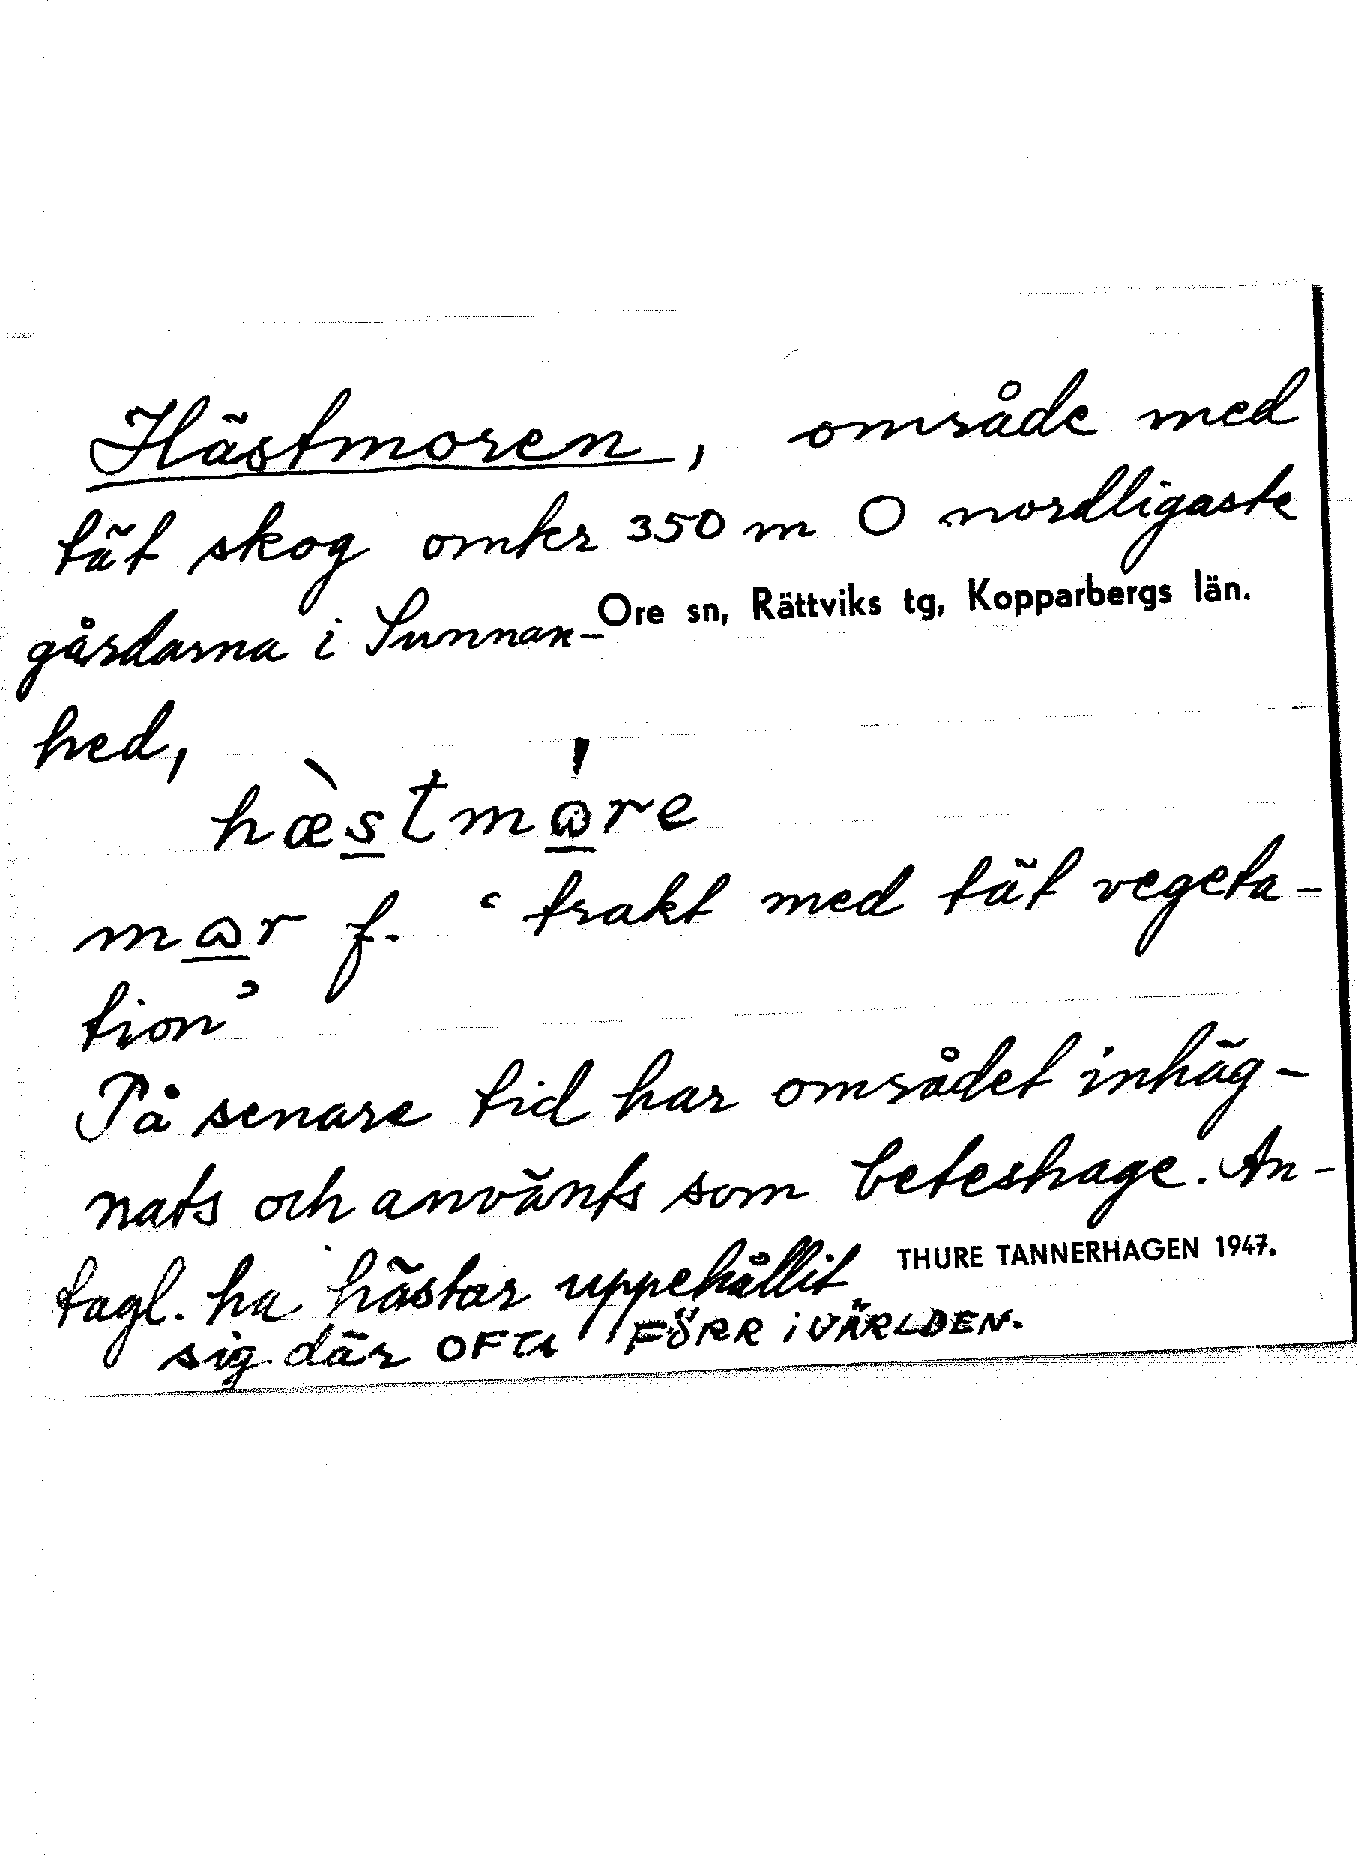 Hästmoren, område med
tät skog omkr 350 m O nordligaste
gårdarna i Sunnan-
Ore sn, Rättviks tg, Kopparbergs län.
hed,
hæ̀stmɷ́re
mɷr f. ‘trakt med tät vegeta-
tion’
På senare tid har området inhäg-
nats och använts som beteshage. An-
tagl. ha hästar uppehållit
THURE TANNERHAGEN 1947.
sig där OFTA FÖRR i VÄRLDEN.